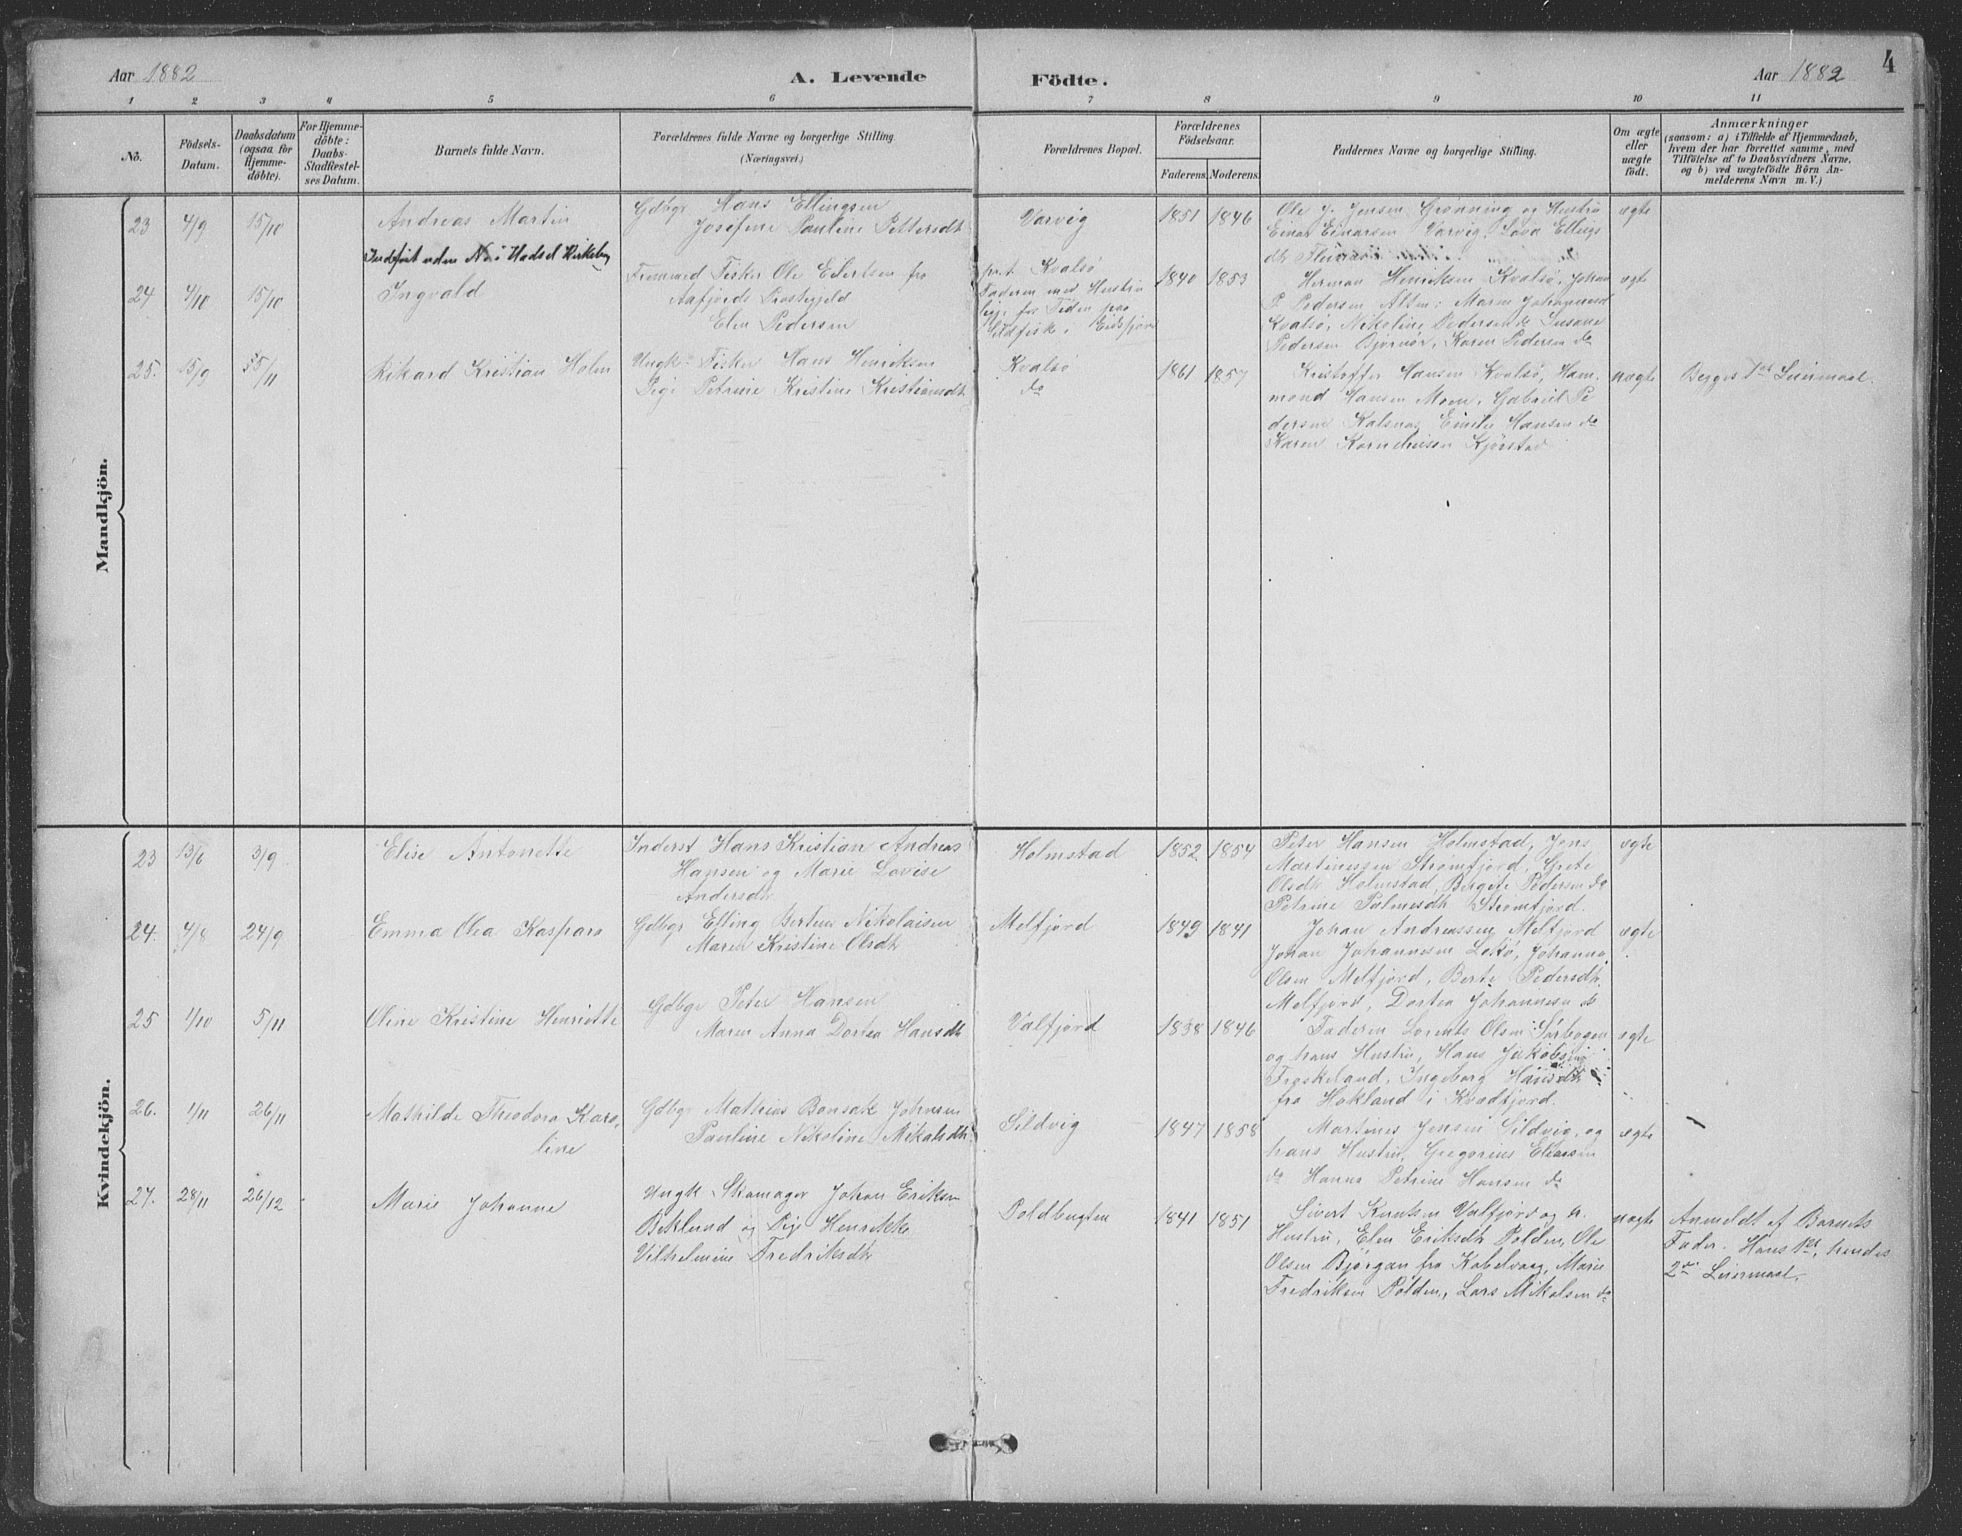 Aar 1882
A. Levende
Födte.
Aar 1882
4
1 2 3 4 5 6 7 8 9 10 11
No.
Födsels-
Datum.
Daabsdatum
(ogsaa for
Hjemme-
döbte).
For Hjemme-
döbte:
Daabs-
Stadfæstel-
ses Datum.
Barnets fulde Navn.
Forældrenes fulde Navne og borgerlige Stilling.
(Næringsvei.)
Forældrenes Bopæl.
Forældrenes
Födselsaar.
Faderens. Moderens.
Faddernes Navne og borgerlige Stilling.
Om ægte
eller
uægte
födt.
Anmærkninger
(saasom: a) i Tilfælde af Hjemmedaab,
hvem der har forrettet samme, med
Tilföielse af to Daabsvidners Navne,
og b) ved uægtefödte Börn An-
melderens Navn m. V.)
Mandkjön.
23 4/9 15/10
Andreas Martin
Indført uden No i Hadsel Kirkebog
Gdbgr Hans Ellingsen
Josefine Pauline Pettersdt
Varvig
1851 1846
Ole J. Jensen Grønning og Hustru
Einar Einarsen Varvig, Lova Ellings
dt
ægte
24 4/10 15/10
Ingvald
Fremmed Fisker Ole Eilertsen fra
Aafjords Prestegjeld
Elen Pedersen
p.t. Kvalsø
Faderen med Hustru
ligr. for Tiden paa
Sildfisk i Eidsfjord
1840 1853
Herman Henriksen Kvalsø, Johan
P. Pedersen Alten; Maren Johannesd
Kvalsø, Nikoline Pedersen & Susane
Pedersen Bjørnør, Karen Pedersen do
ægte
25. 15/9 5/11
Rikard Kristian Holm
Ungk. Fisker Hans Henriksen
Pige Petrine Kristine Kristiansdt
Kvalsø
do
1861 1857
Kristoffer Hansen Kvalsø, Ham-
mond Hansen Moen, Gabriel Pe
dersen Kalsnes, Emilie Hansen do
Karen Korneliusen Kjørstad
uægte
Begges 1ste Leiermaal.
Kvindekjön.
23 13/6 3/9
Elise Antonette
Inderst Hans Kristian Andreas
Hansen og Marie Lovise
Andersdt
Holmstad
1852 1854
Peter Hansen Holmstad, Jens
Martinussen Strømfjord, Grete
Olsdt Holmstad, Bergite Pedersen do
Petrine Palmesdt Strømfjord
ægte
24. 4/8 24/9
Emma Olea Kaspara
Gdbgr Elling Berteus Nikolaisen
Maren Kristine Olsdt
Melfjord
1849 1841
Johan Andreassen Melfjord
Johan Johannesen Lokø, Johanna
Olsen Melfjord, Berte Pedersdt
Melfjord, Dortea Johannesen do
ægte
25 1/10 5/11
Oline Kristine Henriette
Gdbgr Peter Hansen
Maren Anna Dortea Hansdt
Valfjord
1838 1846
Faderen Lorents Olsen Sørbogen
og hans Hustru, Hans Jakobsen
Frøskeland, Ingeborg Hansdt
fra Hokland i Kvædfjord.
ægte
26. 1/11 26/11
Mathilde Theodora Karo,
line
Gdbgr Mathias Bonsak Johnsen
Pauline Nikoline Mikalsdt
Sildvig
1847 1858
Martenes Jensen Sildvig, og
hans Hustru, Gregorius Eliassen
do Hanna Petrine Hansen do
ægte
27. 28/11 26/12
Marie Johanne
Ungk. Skomager Johan Eriksen
Beklund og Pige Henrikke
Vilhelmine Fredriksdt
Poldbugten
1841 1851
Sivert Knutsen Valfjord og h.
Hustru, Elen Eriksdt Polden, Ole
Olsen Bjørgan fra Kabelvaag, Marie
Fredriksen Polden, Lars Mikalsen do
uægte
Anmeldt af Barnets
Fader. Hans 1ste, hendes
2det Leiermaal.